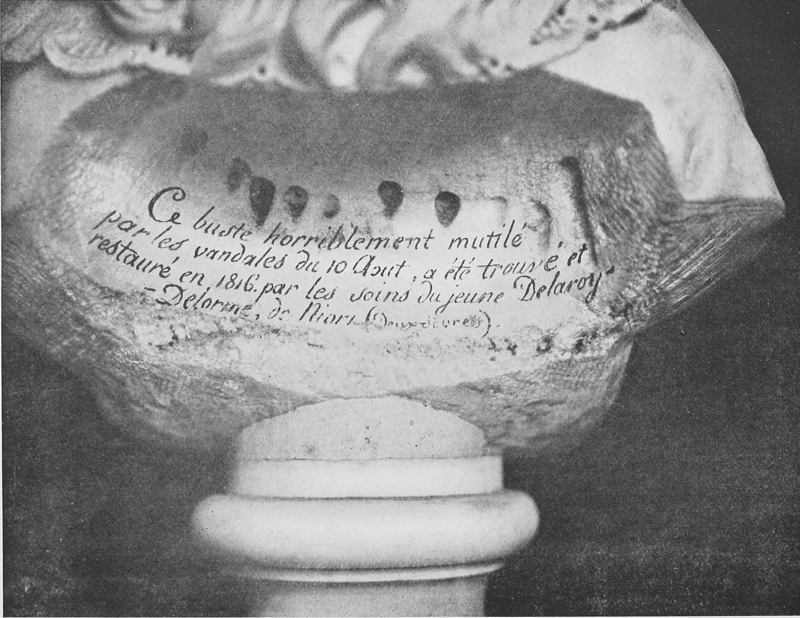 Ce buste horriblement mutilé
par les vandales du 10 Aout, a été trouvé et
restauré en 1816. par les soins du jeune Delaroy-
-Delorme, de Niort (Deux sèvres).